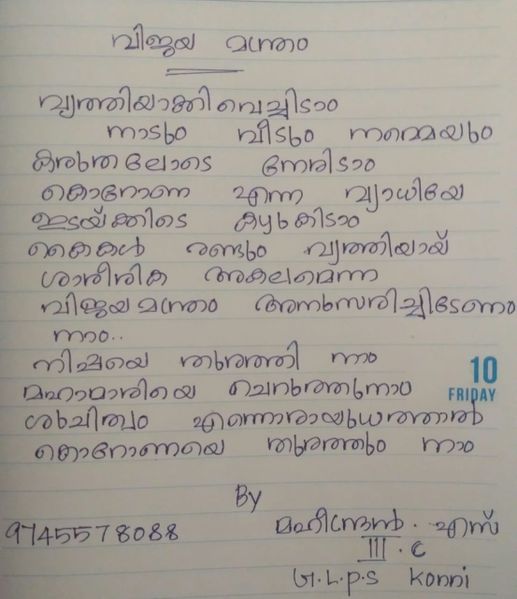 വിജയ മന്ത്രം
വൃത്തിയാക്കി വെച്ചിടാം
നാടും വീടും നമ്മെയും
കരുതലോടെ നേരിടാം
കൊറോണ എന്ന വ്യാധിയേ
ഇടയ്ക്കിടെ കഴുകിടാം
കൈകൾ രണ്ടും വൃത്തിയായ്
ശാരീരിക അകലമെന്ന
വിജയ മന്ത്രം അനുസരിച്ചിടേണം
നാം..
നിപ്പയെ തുരത്തി നാം
മഹാമാരിയെ ചെറുത്തുനാം
ശുചിത്വം എന്നൊരായുധത്താൽ
കൊറോണയെ തുരത്തും നാം
10
FRIDAY
By
9745578088 മഹീന്ദ്രൻ. എസ്
III. C
G.L.P.S Konni